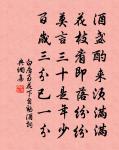 酒盏酌来须满满
花枝看即落纷纷
莫言三十是年少
百岁三分已一分
白居易花下自劝酒詞
典纲集